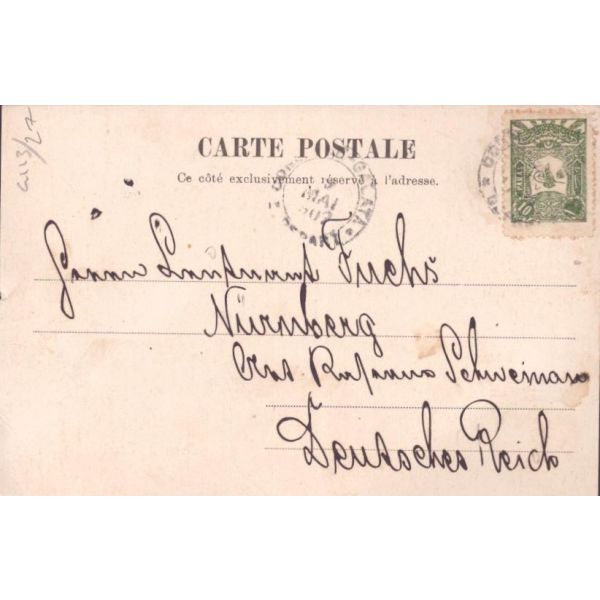 CARTE POSTALE
Ce côté exclusivement réservé à l'adresse.
GALATA
MAI
DEPART
10 PARAS
Herrn Leutnant Fuchs
Nürnberg
Schweinau
Deutsches Reich